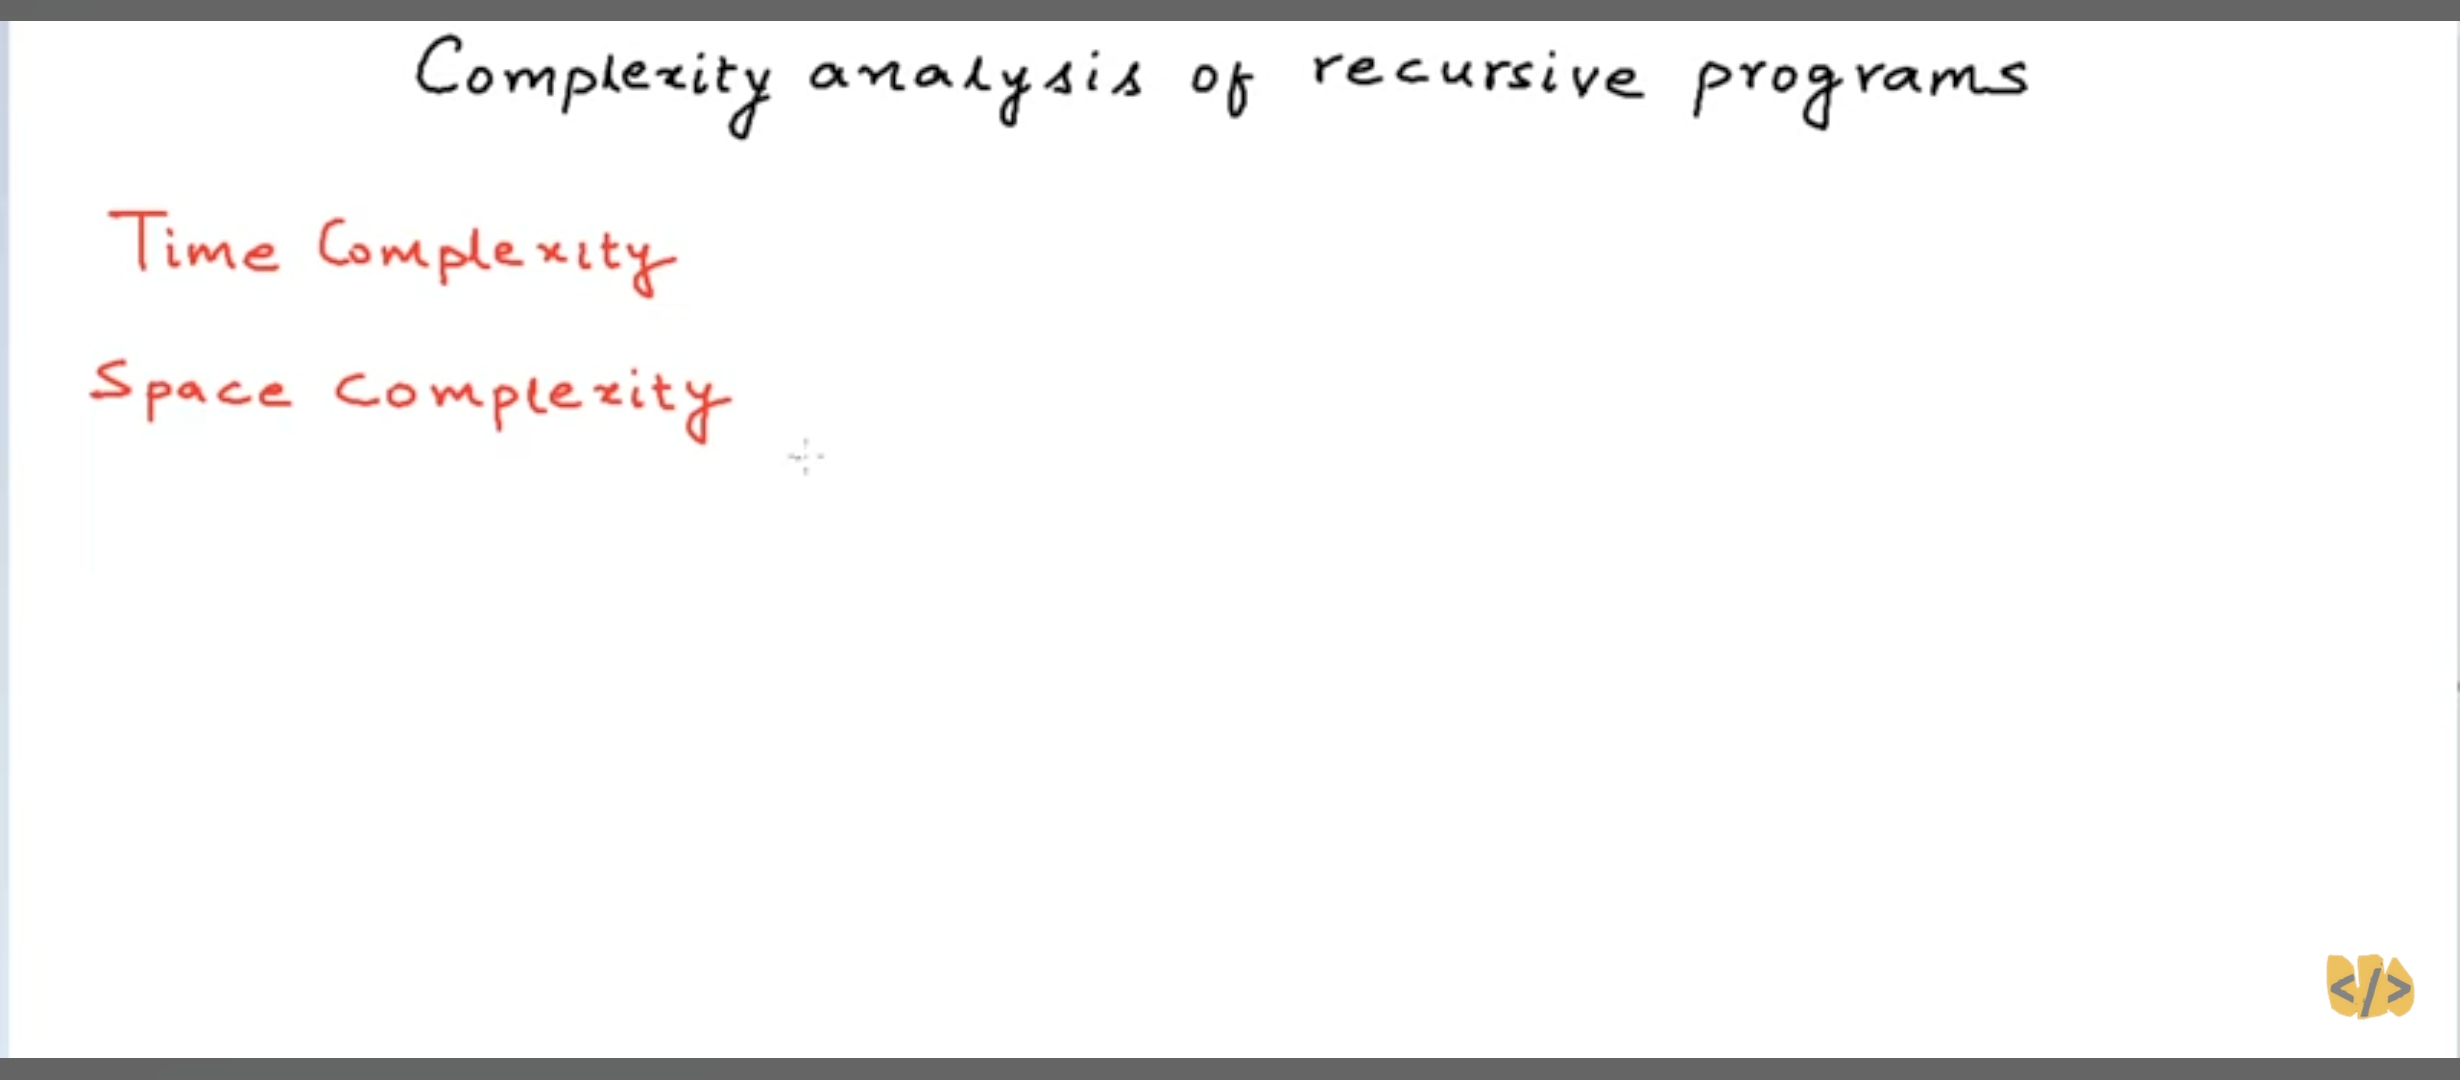 Complexity analysis of recursive programs
Time Complexity
Space Complexity
</>